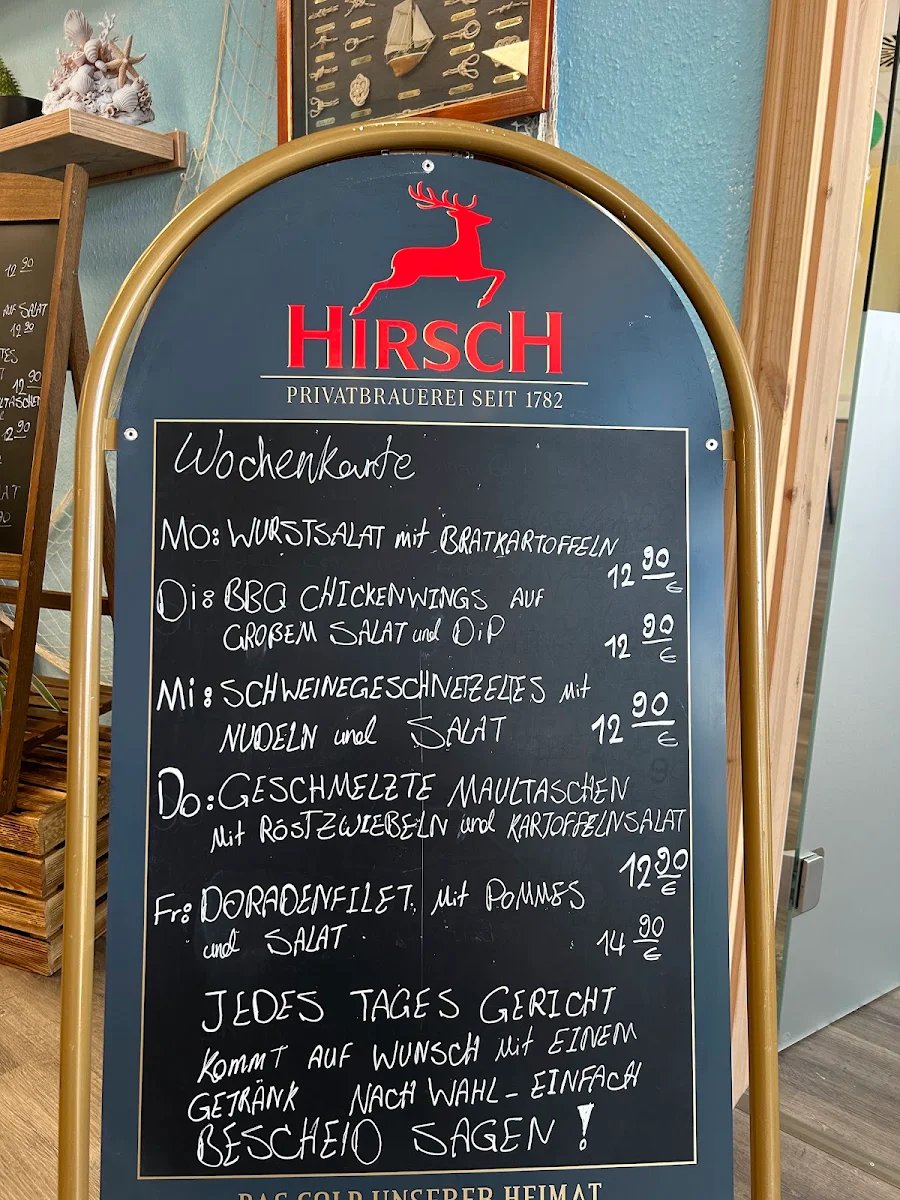 HIRSCH
PRIVATBRAUEREI SEIT 1782
Wochenkarte
Mo: WURSTSALAT mit BRATKARTOFFELN
12 90 €
Di: BBQ CHICKENWINGS AUF
GROßEM SALAT und DiP
12 90 €
Mi: SCHWEINEGESCHNETZELTES mit
NUDELN und SALAT
12 90 €
Do: GESCHMELZTE MAULTASCHEN
Mit RÖSTZWIEBELN und KARTOFFELNSALAT
12 90 €
Fr: DORADENFILET Mit POMMES
und SALAT
14 90 €
JEDES TAGES GERICHT
KOMMT AUF WUNSCH Mit EINEM
GETRÄNK NACH WAHL - EINFACH
BESCHEID SAGEN!
DAS GOLD UNSERER HEIMAT
12 90
AUF SALAT
12 90
12 90
12 90